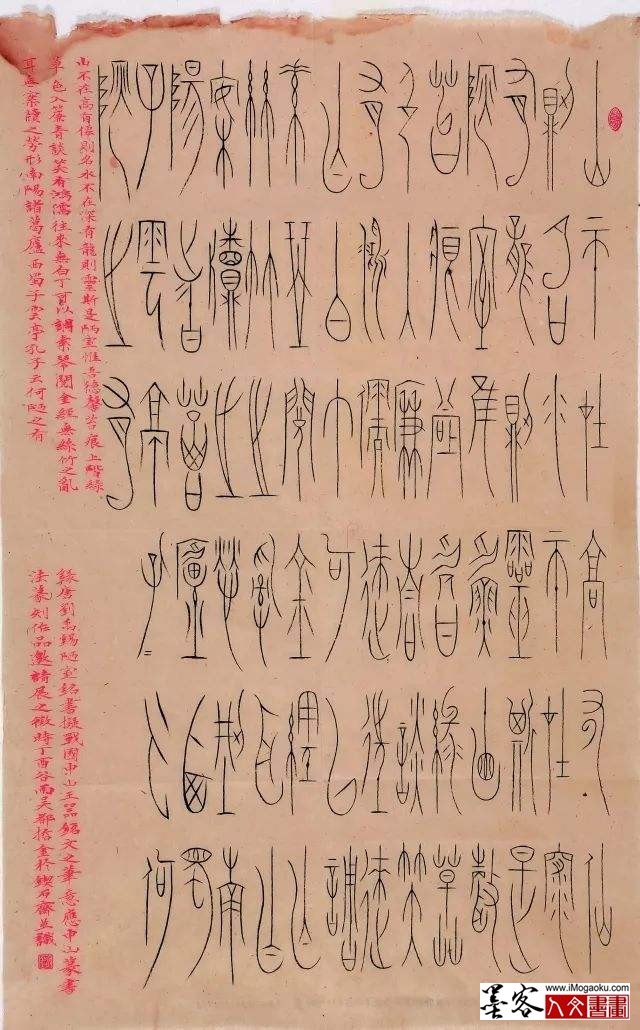 山不在高有仙
則名水不在深
有龍則靈斯是
陋室惟吾德馨
苔痕上階綠草
色入簾青談笑
有鴻儒往來
無白丁可以調
素琴閱金經無
絲竹之亂耳無
案牘之勞形南
陽諸葛廬西蜀
子雲亭孔子云何
陋之有
山不在高有僊則名水不在深有龍則靈斯是陋室惟吾德馨苔痕上階綠
草色入簾青談笑有鴻儒往來無白丁可以調素琴閱金經無絲竹之亂
耳無案牘之勞形南陽諸葛廬西蜀子雲亭孔子云何陋之有
錄唐劉禹錫陋室銘書擬戰國中山王器銘文之筆意應中山篆書
法篆刻作品邀請展之徵時丁酉谷雨吳郡金鍥石齋並識
www.iMogaoku.com
墨客人文書畫